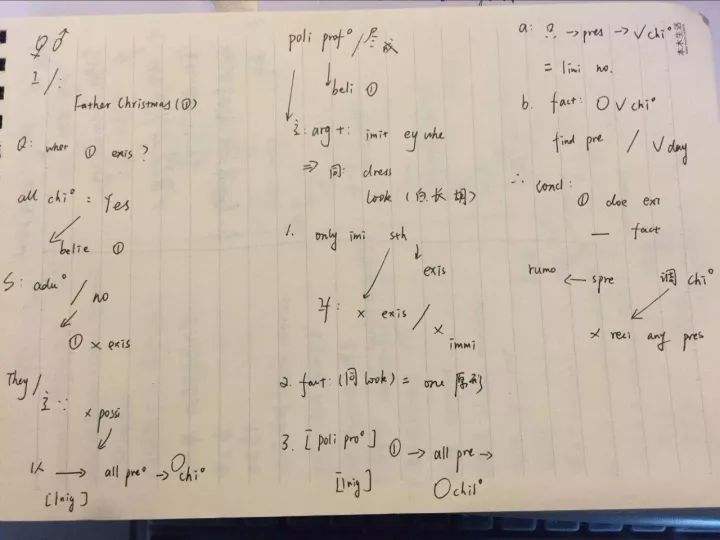 ♀ ♂
I /:
Father Christmas (①)
Q: wher ① exis ?
all chi° = Yes
belie ①
S: adu° / no
① × exis
They / 主 ∵ × possi
1人 → all pre° → ○ chi°
[1nig]
poli prof° /
beli ①
主: arg +: imit ey whe
⇒ 同: dress
look (白.长胡)
1. only imi sth
exis
× exis / × immi
2. fact: (同 look) = one 原形
3. [poli pro°] ① → all pre →
[1nig] ○ chil°
a: → pres → ∨ chi°
= limi no.
b. fact: ○ ∨ chi°
find pre / ∨ day
∴ concl:
① doe exi
— fact
rumo ← spre 调 chi°
× reci any pres
本木生活